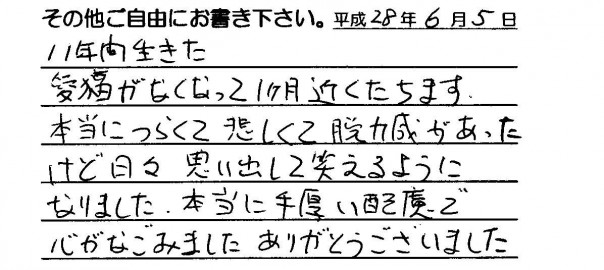 その他ご自由にお書き下さい。平成28年6月5日
11年間生きた
愛猫がなくなって1ヶ月近くたちます.
本当につらくて 悲しくて 脱力感があった
けど日々 思い出して笑えるように
なりました. 本当に手厚い配慮で
心がなごみました ありがとうございました